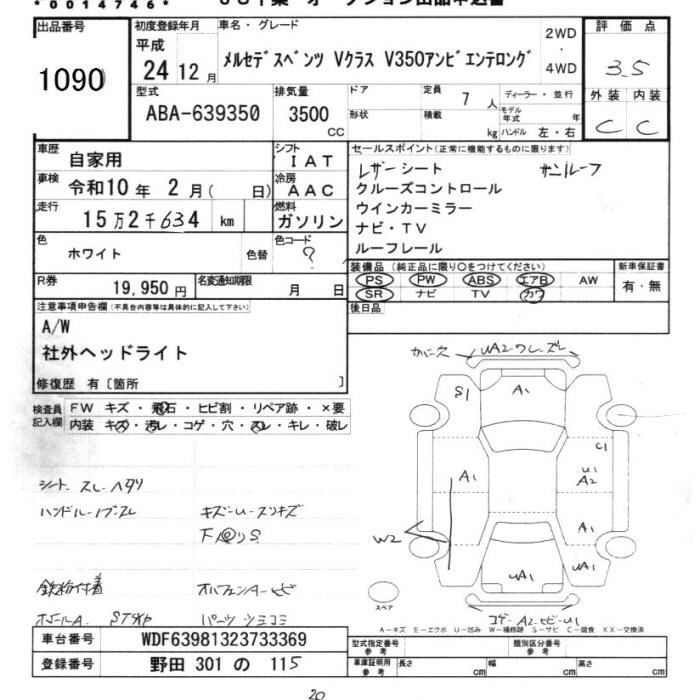 *0014746*
出品番号
1090
初度登録年月
平成
24 12 月
車名・グレード
メルセデスベンツ Vクラス V350アンビエンテロング
2WD
・
4WD
評価点
3.5
外装 内装
C C
型式
ABA-639350
排気量
3500
CC
ドア
形状
定員 7 人
積載 kg
ディーラー・並行
モデル年式 年
ハンドル 左・右
車歴 自家用
シフト IAT
車検 令和10 年 2 月( 日)
冷房 AAC
走行 15 万 2 千 634 km
燃料 ガソリン
色 ホワイト 色替
色コード ?
セールスポイント(正常に機能するものに限ります)
レザーシート サンルーフ
クルーズコントロール
ウインカーミラー
ナビ・TV
ルーフレール
装備品(純正品に限り○をつけてください)
PS PW ABS エアB AW
SR ナビ TV カワ
新車保証書
有・無
R券 19,950 円
名変通知期限 月 日
後日品
注意事項申告欄(不具合内容等は具体的に記入して下さい)
A/W
社外ヘッドライト
修復歴 有〔箇所 〕
検査員記入欄
FW キズ・飛石・ヒビ割・リペア跡・×要
内装 キズ・汚レ・コゲ・穴・スレ・キレ・破レ
シート スレ ヘタリ
S1
A1
C1
A1
U1
A2
A1
W2
UA1
UA1
スペア
A－キズ E－エクボ U－凹み W－補修跡 S－サビ C－腐食 XX－交換済
車台番号 WDF63981323733369
登録番号 野田 301 の 115
型式指定番号 参考
類別区分番号 参考
車庫証明用 参考
長さ cm 幅 cm 高さ cm
20